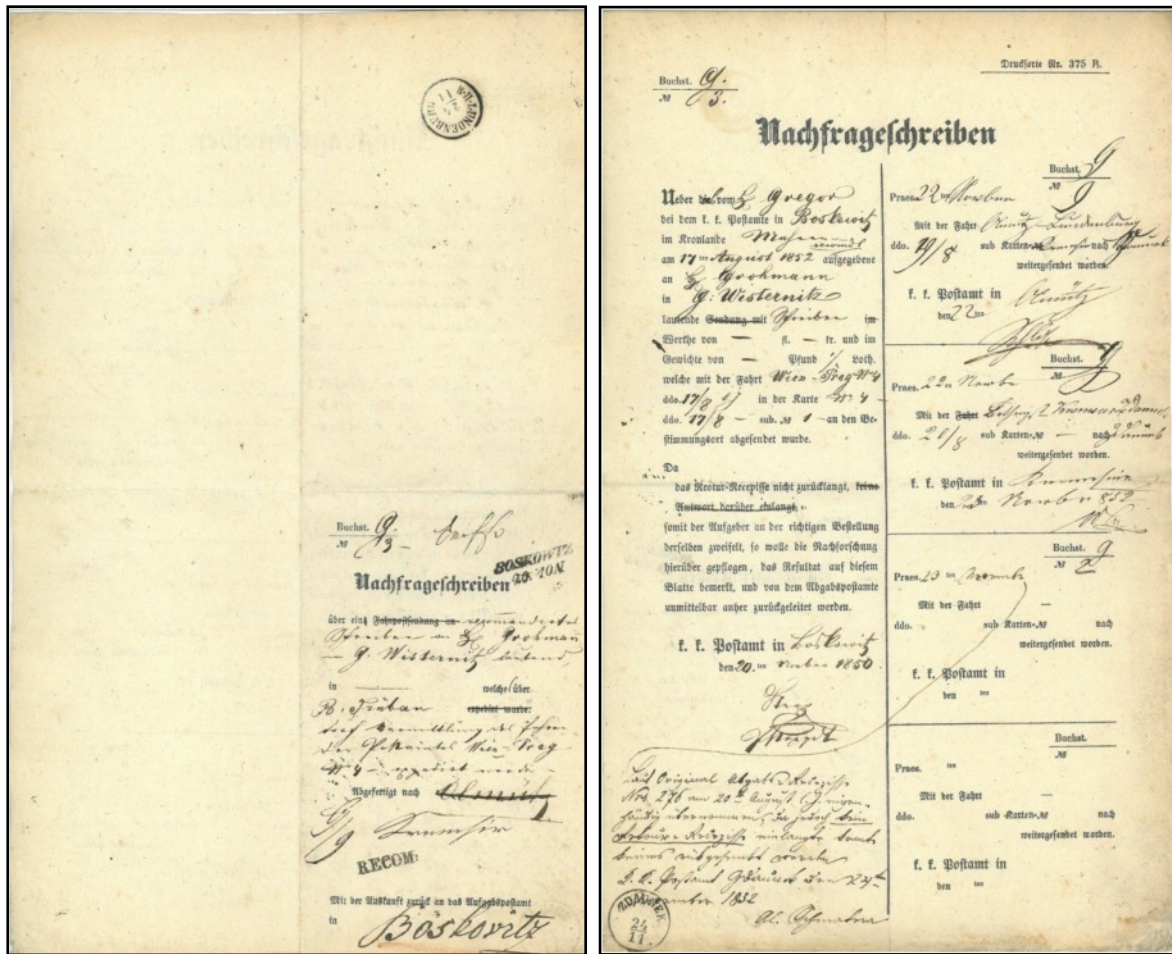 B.H. LUNDENBURG
11
Buchst. G.
№ 3
BOSKOWITZ
20. NOV.
Nachfrageschreiben
über eine Fahrpostsendung an recomandirtes
Schreiben an H. Grohman
G. Wisternitz lautend,
in — welche über
B. Trübau expedirt wurde:
Wien-Prag
№ 4 expedirt wurde
Abgefertigt nach Olmütz
G/9 Kremsir
RECOM:
Mit der Auskunft zurück an das Aufgabspostamt
in Boskovitz
Drucksorte Nr. 375 A.
Buchst. G.
№ 3.
Nachfrageschreiben
Ueber vom H. Gregor
bei dem k. k. Postamte in Boskowitz
im Kronlande Mähren
am 17ten August 1852 aufgegebene
an H. Grohmann
in G: Wisternitz
lautende Sendung mit Schreiben im
Werthe von — fl. — kr. und im
Gewichte von — Pfund ½ Loth.
welche mit der Fahrt Wien-Prag № 4
ddo. 17/8 in der Karte № 4 -
ddo. 17/8 — sub. № 1 — an den Be-
stimmungsort abgesendet wurde.
Da
das Retour-Recepisse nicht zurücklangt, keine
Antwort darüber einlangt,
somit der Aufgeber an der richtigen Bestellung
derselben zweifelt, so wolle die Nachforschung
hierüber gepflogen, das Resultat auf diesem
Blatte bemerkt, und von dem Abgabspostamte
unmittelbar anher zurückgeleitet werden.
k. k. Postamt in Boskowitz
den 20. ten Novber 1850
Laut Original Abgabs Recepisse
Nro. 276 am 20ten August l. J. eigen-
händig übernommen, da jedoch kein
Retour-Recepisse einlangte konnte
keines rückgesendet werden
K. K. Postamt Gdaussek den 24ten
November 1852
GDAUSSEK
24
11.
Buchst. G
№ 9
Praes. 22ten Novber
Mit der Fahrt Olmütz-Lundenburg
ddo. 19/8 sub Karten-№ nach
weitergesendet worden.
k. k. Postamt in Olmütz
den 22 ten
Buchst. G
№ 9
Praes. 22ten Novbr
Mit der Fahrt
ddo. 20/8 sub Karten-№ — nach
weitergesendet worden.
k. k. Postamt in Kremsier
den Novber 852
Buchst. G
№ 2
Praes. 23 ten November
Mit der Fahrt —
ddo. sub Karten-№ nach
weitergesendet worden.
k. k. Postamt in
den ten
Buchst.
№
Praes. ten
Mit der Fahrt —
ddo. sub Karten-№ nach
weitergesendet worden.
k. k. Postamt in
den ten